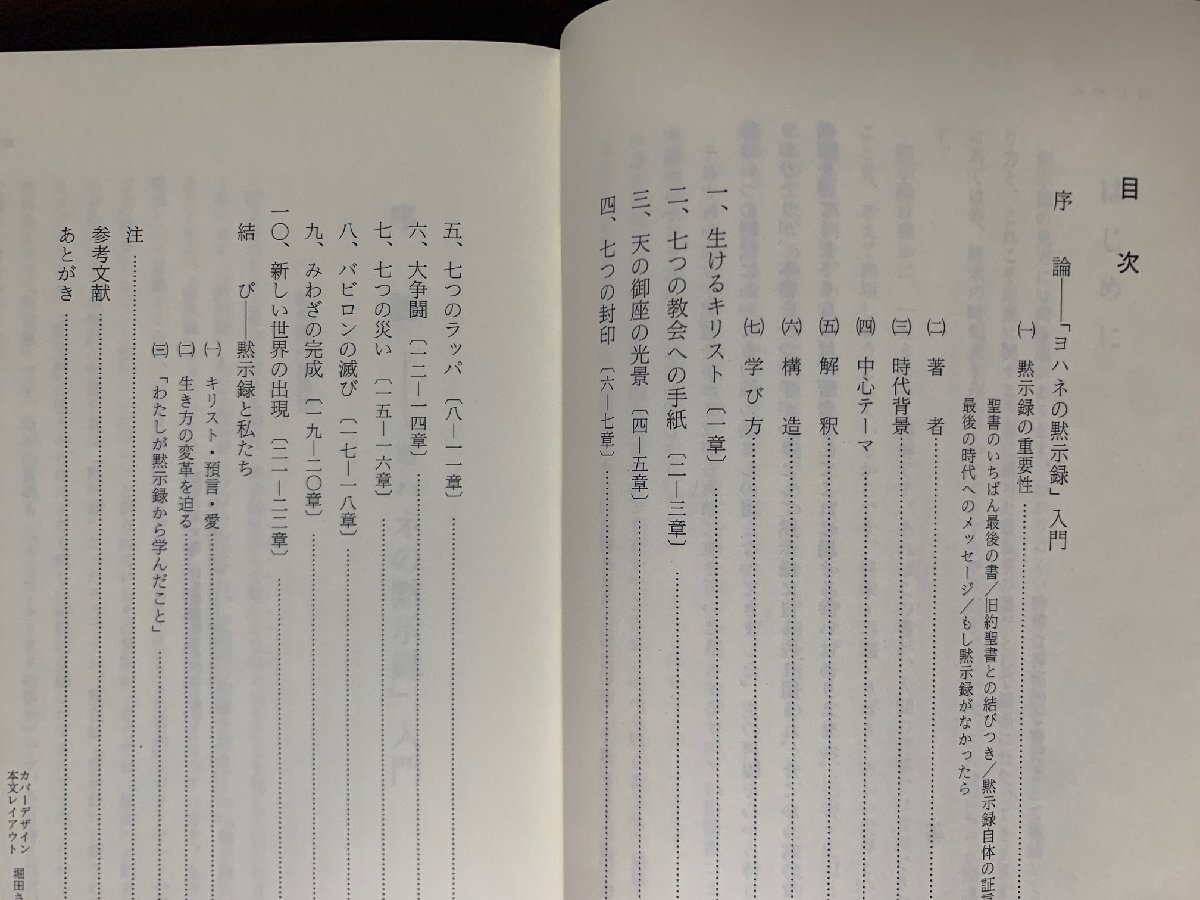 目次
序　論――「ヨハネの黙示録」入門
㈠　黙示録の重要性
聖書のいちばん最後の書／旧約聖書との結びつき／黙示録自体の証言
最後の時代へのメッセージ／もし黙示録がなかったら
㈡　著　者
㈢　時代背景
㈣　中心テーマ
㈤　解　釈
㈥　構　造
㈦　学び方
一、生けるキリスト〔一章〕
二、七つの教会への手紙〔二―三章〕
三、天の御座の光景〔四―五章〕
四、七つの封印〔六―七章〕
五、七つのラッパ〔八―一一章〕
六、大争闘〔一二―一四章〕
七、七つの災い〔一五―一六章〕
八、バビロンの滅び〔一七―一八章〕
九、みわざの完成〔一九―二〇章〕
一〇、新しい世界の出現〔二一―二二章〕
結　び――黙示録と私たち
㈠　キリスト・預言・愛
㈡　生き方の変革を迫る
㈢　「わたしが黙示録から学んだこと」
注
参考文献
あとがき
カバーデザイン
本文レイアウト　堀田